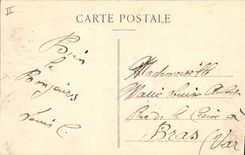 II
CARTE POSTALE
Bien
le
Bonjour
Louis C.
Mademoiselle
Marie Louise
Rue de la
Bras
(Var)